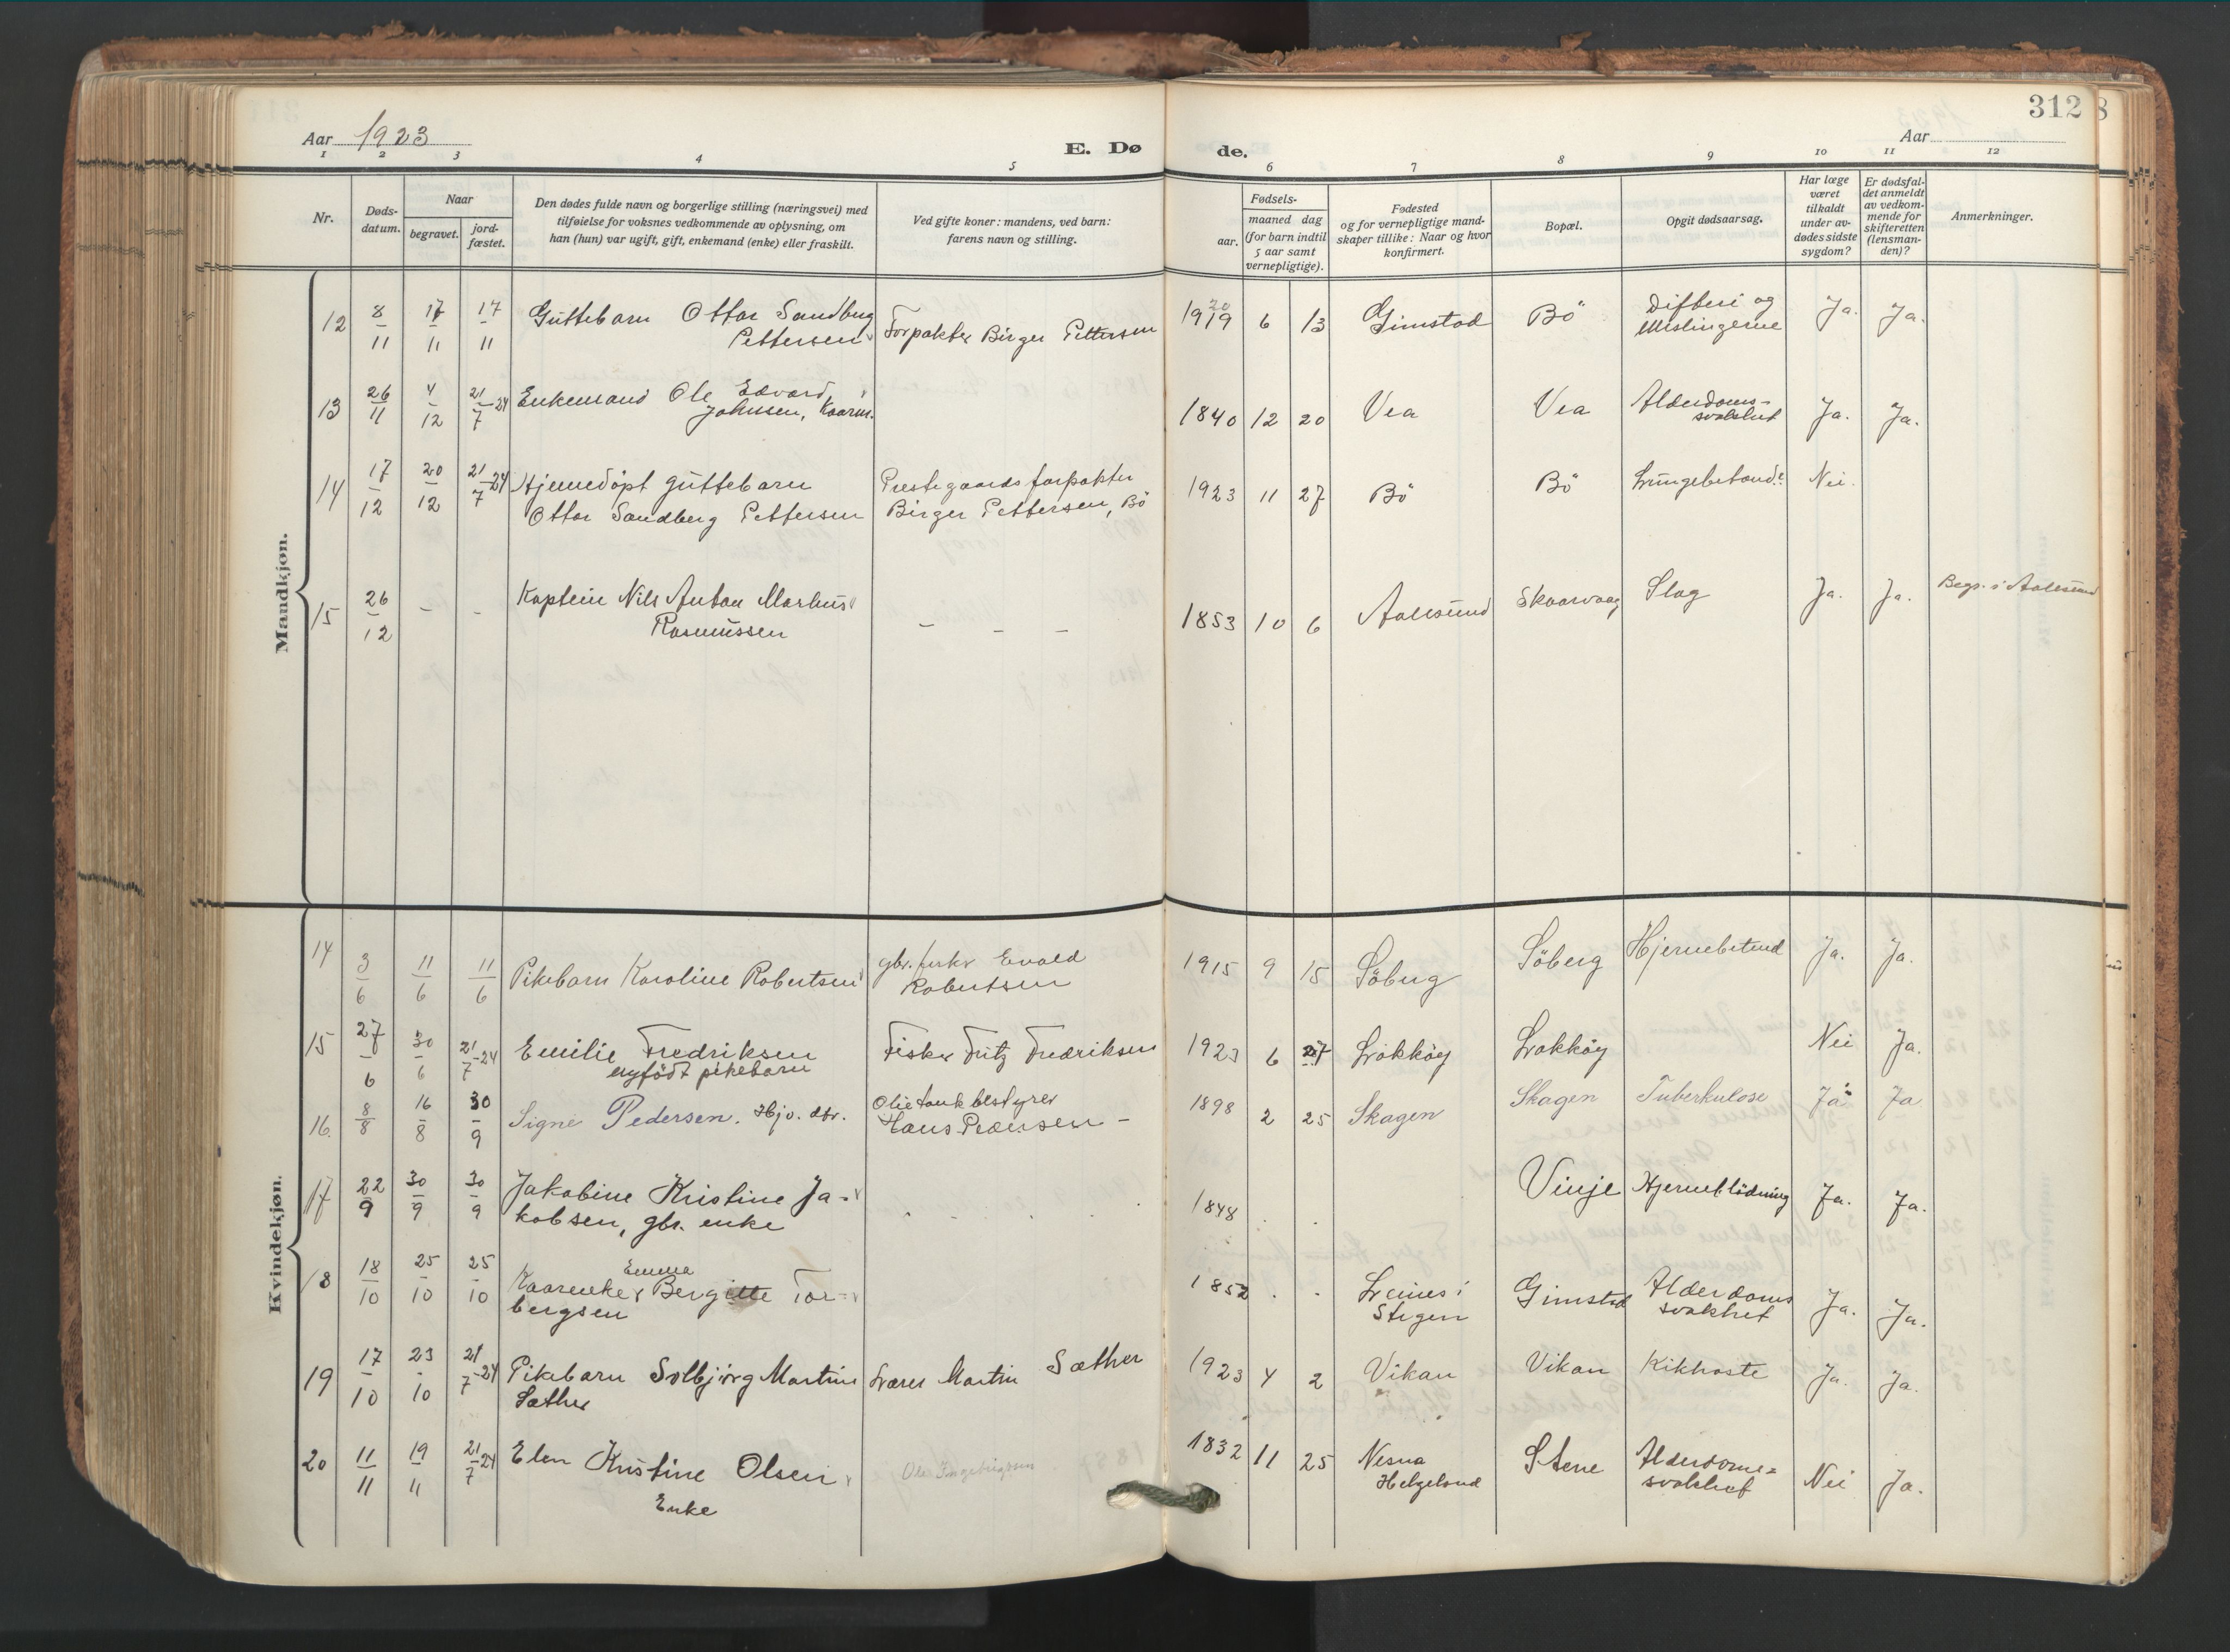 Aar 1923
E. Dø
de.
312
8
Aar
1 2 3 4 5 6 7 8 9 10 11 12
Nr.
Døds-
datum.
Naar
begravet.
jord-
fæstet.
Den dødes fulde navn og borgerlige stilling (næringsvei) med
tilføielse for voksnes vedkommende av oplysning, om
han (hun) var ugift, gift, enkemand (enke) eller fraskilt.
Ved gifte koner: mandens, ved barn:
farens navn og stilling.
Fødsels-
aar.
maaned dag
(for barn indtil
5 aar samt
vernepligtige).
Fødested
og for vernepligtige mand-
skaper tillike: Naar og hvor
konfirmert.
Bopæl.
Opgit dødsaarsag.
Har læge
været
tilkaldt
under av-
dødes sidste
sygdom?
Er dødsfal-
det anmeldt
av vedkom-
mende for
skifteretten
(lensman-
den)?
Anmerkninger.
Mandkjøn.
12 8/11 17/11 17/11 Guttebarn Ottar Sandberg
Pettersen
Forpakter Birger Pettersen
20
1919 6 13 Gimstad Bö Difteri og
Meslingerne
Ja. Ja.
13 26/11 4/12 21/7-24 Enkemand Ole Edvard
Johnsen, Kaarm.
1840 12 20 Vea Vea Alderdoms-
svakhet
Ja. Ja.
14 17/12 20/12 21/7-24 Hjemedöpt guttebarn
Ottar Sandberg Pettersen
Prestegaardsforpakter
Birger Pettersen, Bö
1923 11 27 Bö Bö Lungebetænd. Nei.
15 26/12 - - Kaptein Nils Anton Markus
Rasmussen
- - -
1853 10 6 Aalesund Skaarvaag Slag Ja. Ja. Begr. i Aalesund
Kvindekjøn.
14 3/6 11/6 11/6 Pikebarn Karoline Robertsen
gbr. fisker Evald
Robertsen
1915 9 15 Söberg Söberg Hjernebetend Ja. Ja.
15 27/6 30/6 21/7-24 Emilie Fredriksen
nyfödt pikebarn
Fisker Fritz Fredriksen
1923 6 27 Lokköy Lokköy Nei Ja.
16. 8/8 16/8 30/9 Signe Pedersen. Hjv. dtr.
Olietankbestyrer
Hans Pedersen -
1898 2 25 Skagen Skagen Tuberkulose Ja Ja
17 22/9 30/9 30/9 Jakobine Kristine Ja-
kobsen, gbr. enke
1848 Vinje Hjerneblödning Ja. Ja.
18 18/10 25/10 25/10 Kaarenke Emma Bergitte Tor-
bergsen
1852 Leines i
Stegen
Gimstad Alderdoms
svakhet
Ja. Ja.
19 17/10 23/10 21/7-24 Pikebarn Solbjörg Martine
Sæther
Lærer Martin Sæther
1923 4 2 Vikan Vikan Kikhoste Ja. Ja.
20 11/11 19/11 21/7-24 Elen Kristine Olsen
Enke
Ole Ingebrigtsen
1832 11 25 Nesna
Helgeland
Stene Alderdoms-
svakhet
Nei Ja.